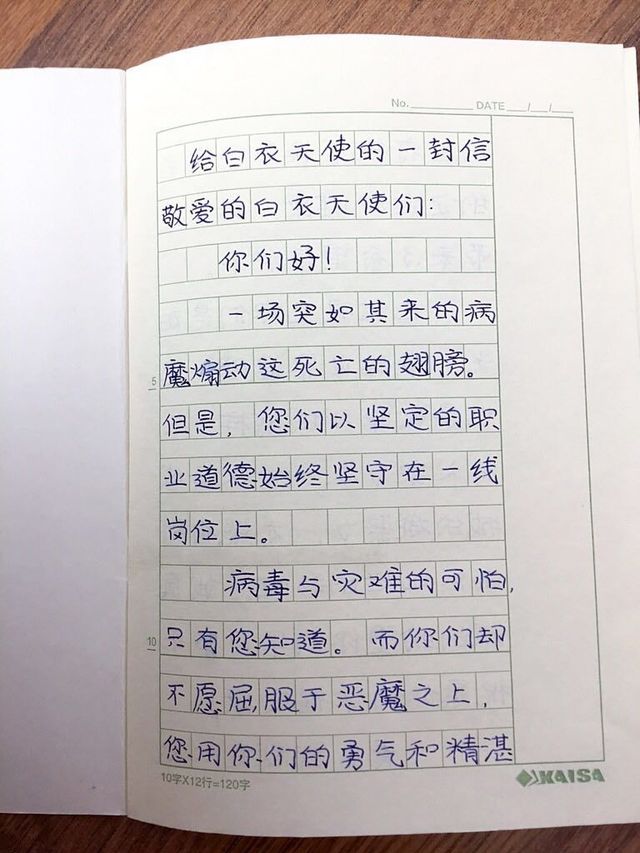 No. DATE / /
给白衣天使的一封信
敬爱的白衣天使们：
你们好！
一场突如其来的病
魔煽动这死亡的翅膀。
5
但是，您们以坚定的职
业道德始终坚守在一线
岗位上。
病毒与灾难的可怕，
10
只有您知道。而你们却
不愿屈服于恶魔之上，
您用你们的勇气和精湛
10字X12行=120字
KAISA